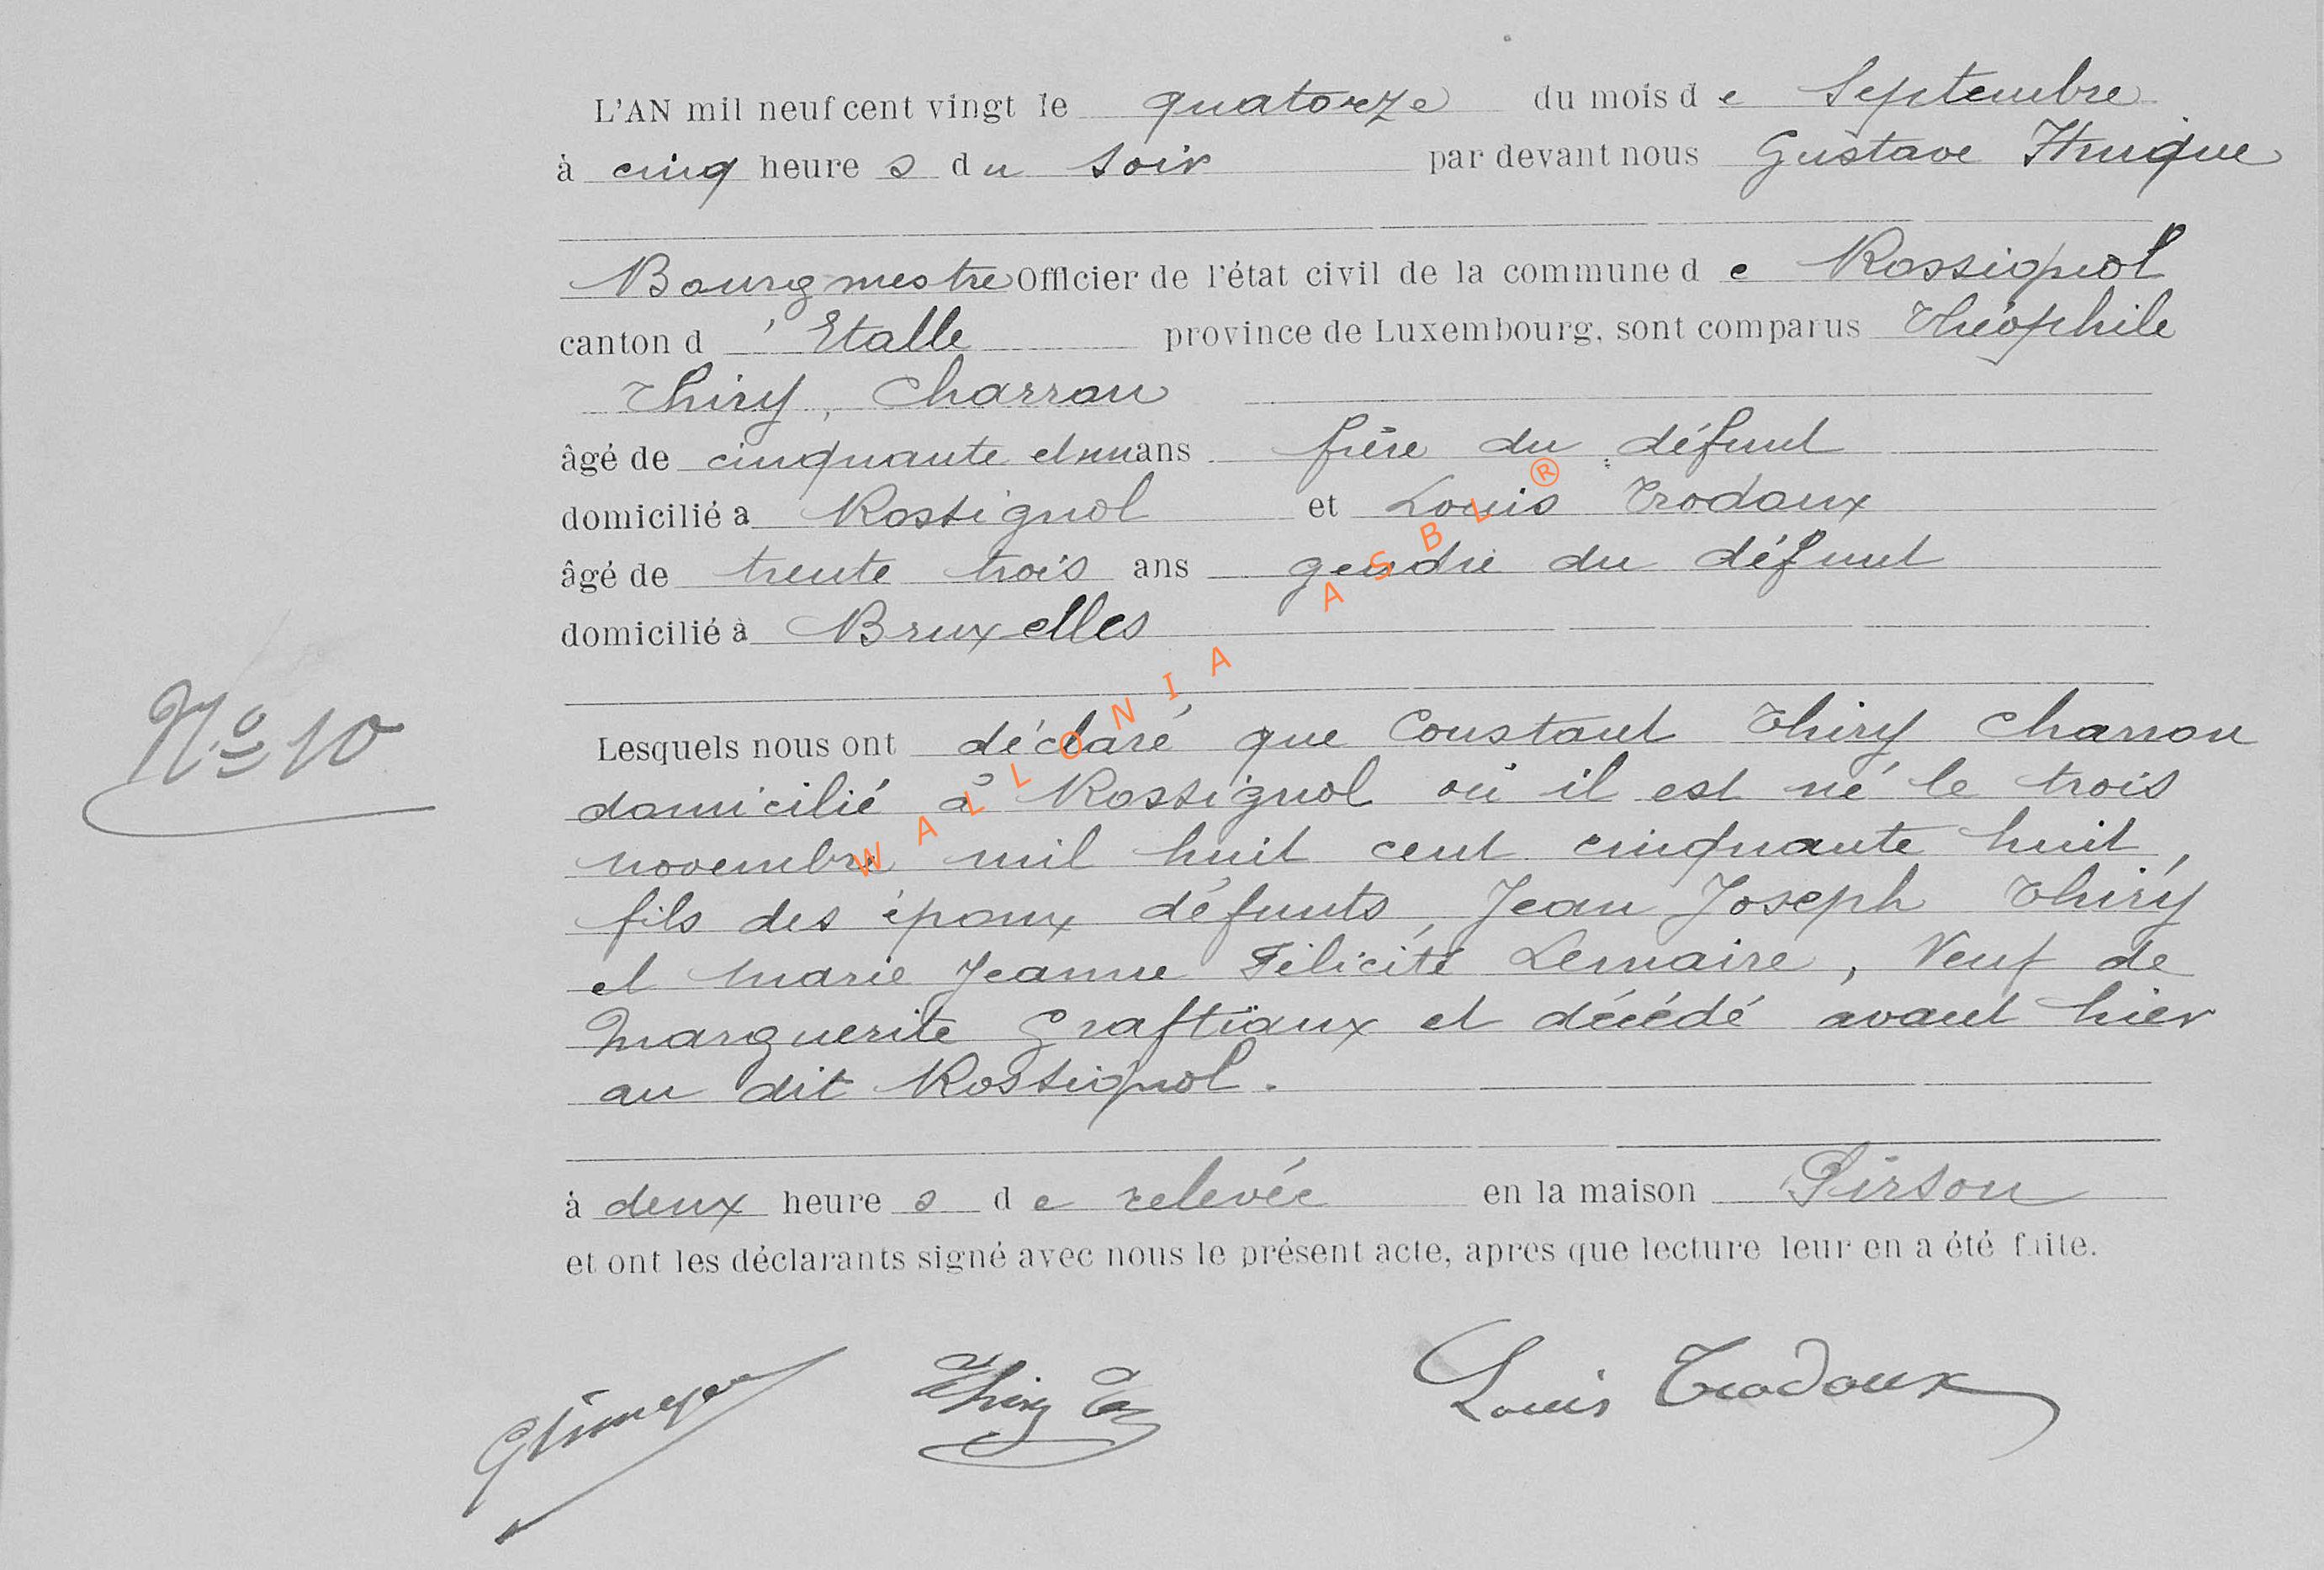 L'AN mil neuf cent vingt le quatorze du mois de Septembre
à cinq heures du soir par devant nous Gustave
Bourgmestre Officier de l'état civil de la commune de Rossignol
canton d'Etalle province de Luxembourg, sont comparus Théophile
Thiry, Charron
âgé de cinquante et un ans frère du défunt
domicilié a Rossignol et Louis Trodoux
âgé de trente trois ans gendre du défunt
domicilié à Bruxelles
N° 10
Lesquels nous ont déclaré que Constant Thiry Charron
domicilié à Rossignol où il est né le trois
novembre mil huit cent cinquante huit,
fils des époux défunts, Jean Joseph Thiry
et Marie Jeanne Félicité Lemaire, Veuf de
Marguerite Graftiaux et décédé avant hier
au dit Rossignol.
à deux heures de relevée en la maison Pirson
et ont les déclarants signé avec nous le présent acte, apres que lecture leur en a été faite.
Thiry Louis Trodoux
WALLONIA ASBL ®